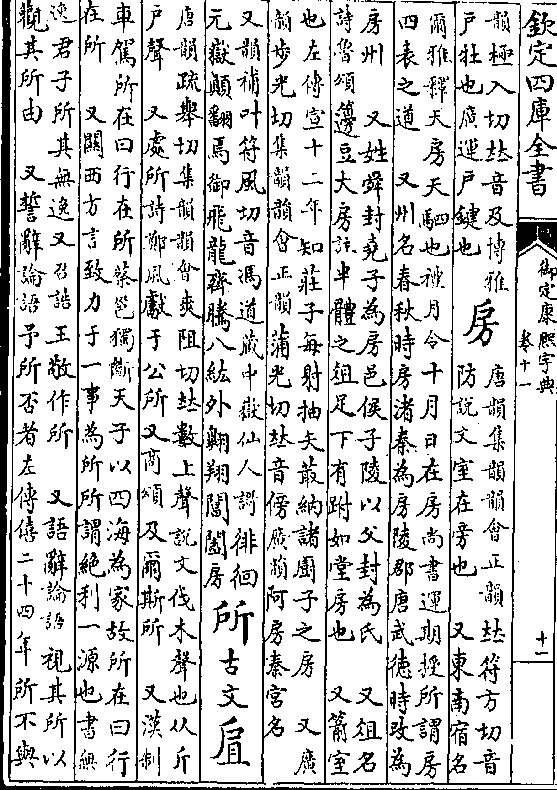 欽定四庫全書
御定康熙字典
卷十一
十一
韻極入切𠀤音及博雅
戶牡也廣運戶鍵也
房
唐韻集韻韻會正韻𠀤符方切音
防說文室在旁也 又東南宿名
爾雅釋天房天駟也禮月令十月日在房尚書運期授所謂房
四表之道 又州名春秋時房渚秦為房陵郡唐武徳時改為
房州 又姓舜封堯子為房邑侯子陵以父封為氏 又俎名
詩魯頌籩豆大房註半體之俎足下有跗如堂房也 又箭室
也左傳宣十二年知莊子每射抽矢菆納諸廚子之房 又廣
韻步光切集韻韻會正韻蒲光切𠀤音傍廣韻阿房秦宮名
又韻補叶符風切音馮道藏中嶽仙人謌徘徊
元嶽巔翻焉御飛龍齊騰八紘外翱翔閶闔房
所
古文𢨷
唐韻疏舉切集韻韻會爽阻切𠀤數上聲說文伐木聲也从斤
戶聲 又處所詩鄭風獻于公所又商頌及爾斯所 又漢制
車駕所在曰行在所蔡邕獨斷天子以四海為家故所在曰行
在所 又關西方言致力于一事為所所謂絶利一源也書無
逸君子所其無逸又召誥王敬作所 又語辭論語視其所以
觀其所由 又誓辭論語予所否者左傳僖二十四年所不與